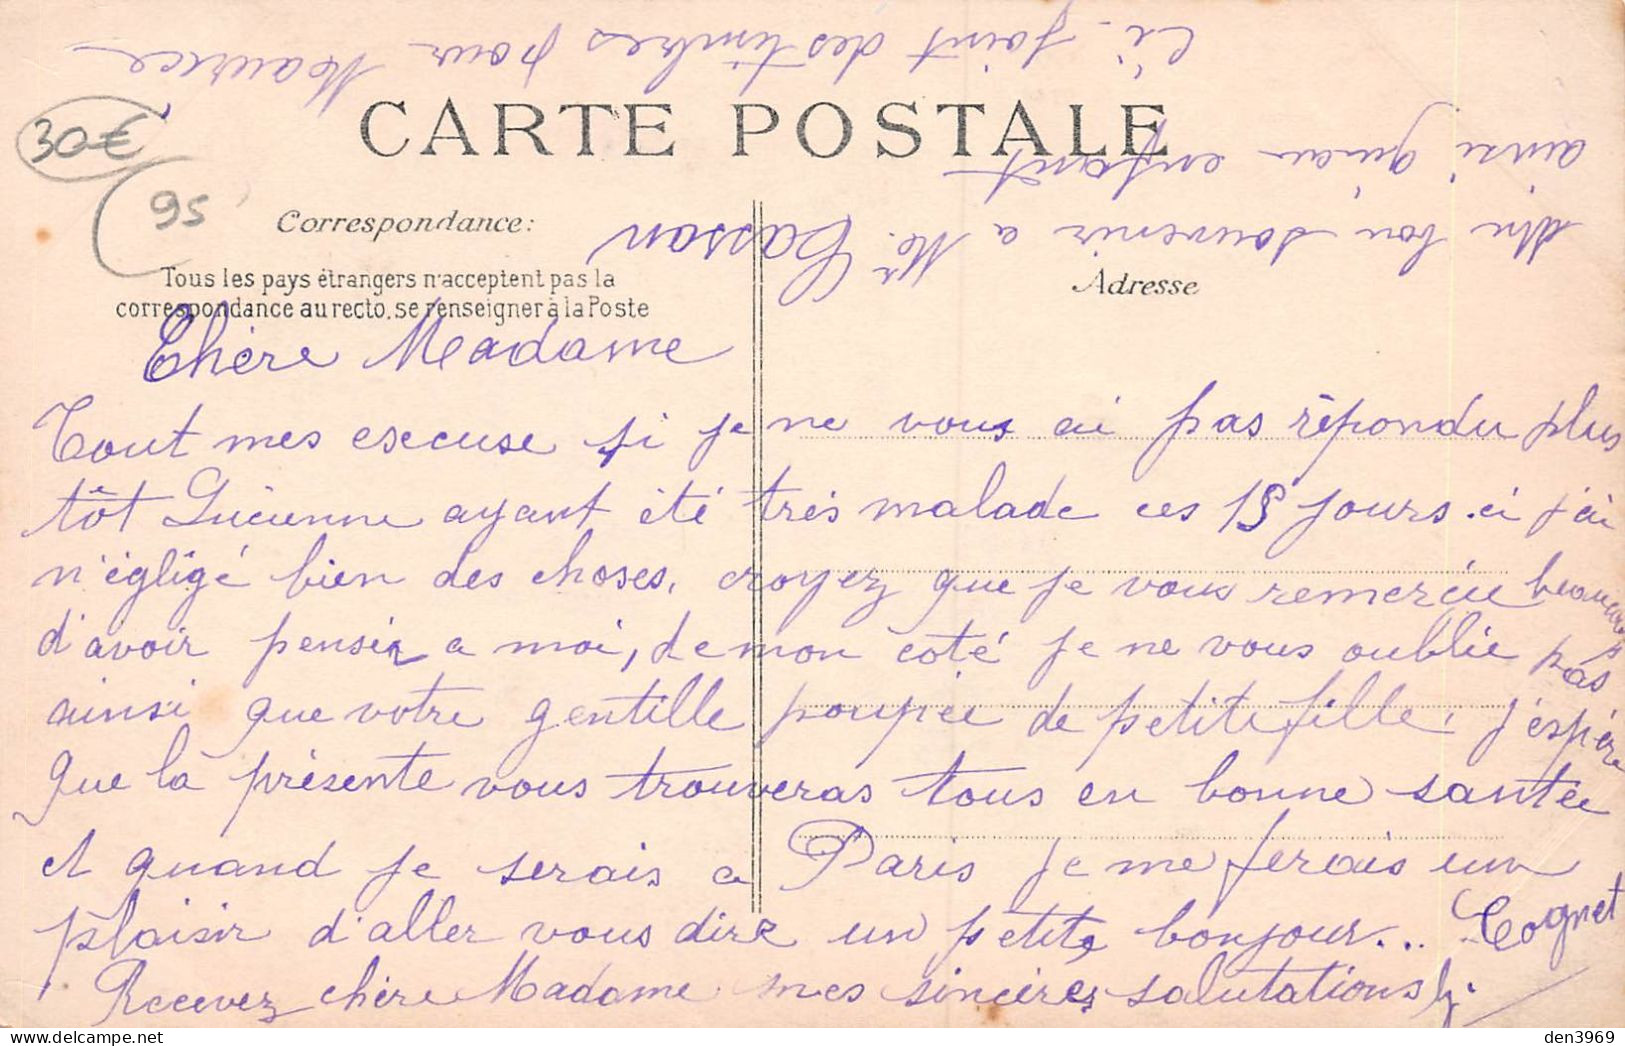 CARTE POSTALE
30€
95
Correspondance:
Tous les pays étrangers n'acceptent pas la
correspondance au recto, se renseigner à la Poste
Adresse
Chère Madame
Tout mes escuse si je ne vous ai pas répondu plus
tôt Lucienne ayant été très malade ces 15 jours. ci j'ai
n'égligé bien des choses, croyez que je vous remercie beaucoups
d'avoir penser a moi, de mon coté je ne vous oublie pas
ainsi que votre gentille poupée de petite fille, j'éspère
que la présente vous trouveras tous en bonne santée
et quand je serais a Paris je me ferais un
plaisir d'aller vous dire un petit bonjour...
Recevez chère Madame mes sincères salutations
Cognet
Un bon souvenir a Mr Casson
ainsi qu'au enfant
Ci-joint des timbres pour Maurice
den3969